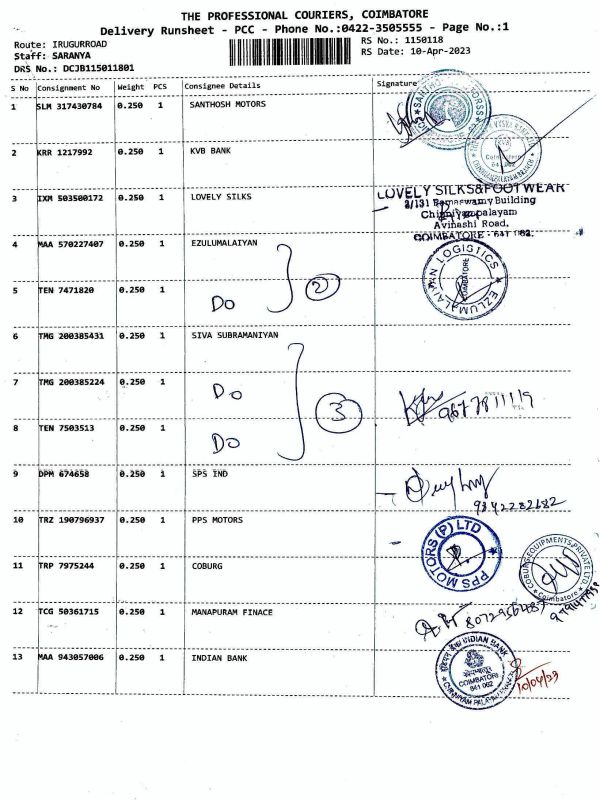 THE PROFESSIONAL COURIERS, COIMBATORE
Delivery Runsheet - PCC - Phone No.:0422-3505555 - Page No.:1
Route: IRUGURROAD
RS No.: 1150118
Staff: SARANYA
RS Date: 10-Apr-2023
DRS No.: DCJB115011801
S No Consignment No Weight PCS Consignee Details Signature
1 SLM 317430784 0.250 1 SANTHOSH MOTORS
2 KRR 1217992 0.250 1 KVB BANK
3 IXM 503500172 0.250 1 LOVELY SILKS
LOVELY SILKS&FOOTWEAR
2/131 Ramaswamy Building
Chinniyampalayam
Avinashi Road,
COIMBATORE - 641 062.
4 MAA 570227407 0.250 1 EZULUMALAIYAN
EZLUMALAIYAN LOGISTICS
COIMBATORE
5 TEN 7471820 0.250 1 Do 2
6 TMG 200385431 0.250 1 SIVA SUBRAMANIYAN
7 TMG 200385224 0.250 1 Do 3
9677811119
8 TEN 7503513 0.250 1 Do
9 DPM 674658 0.250 1 SPS IND
9342282682
10 TRZ 190796937 0.250 1 PPS MOTORS
PPS MOTORS (P) LTD
11 TRP 7975244 0.250 1 COBURG
COBURG EQUIPMENTS PRIVATE LTD
Coimbatore
12 TCG 50361715 0.250 1 MANAPURAM FINACE
13 MAA 943057006 0.250 1 INDIAN BANK
INDIAN BANK
COIMBATORE
641 062
10/04/23